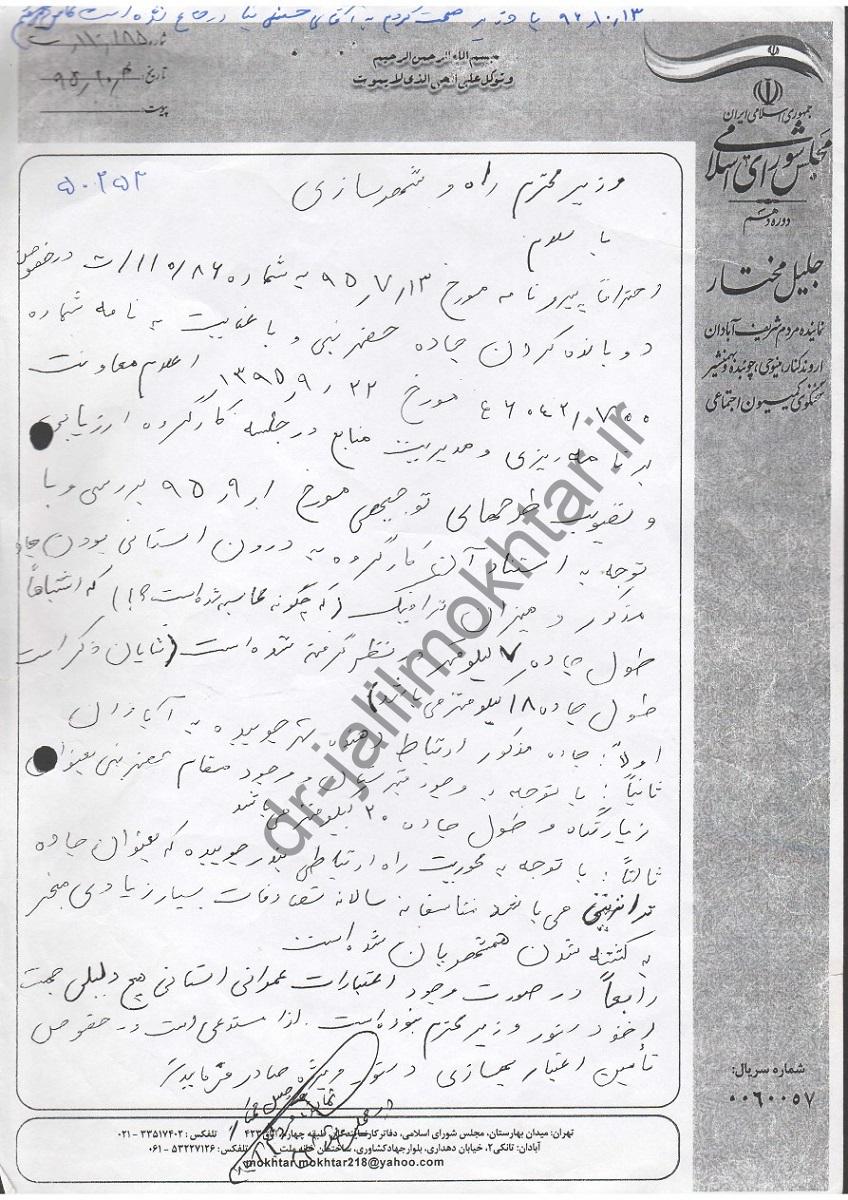 ۹۶٫۱۰٫۱۳ با وزیر صحبت کردم به آقای حسینی نیا ارجاع نموده است
بسم الله الرحمن الرحیم
و توکل علی الحی الذی لا یموت
شماره: ۱۱۰/۱۸۵/ت
تاریخ: ۹۵٫۱۰٫۴
پیوست:
جمهوری اسلامی ایران
مجلس شورای اسلامی
دوره دهم
جلیل مختار
نماینده مردم شریف آبادان
اروندکنار، مینوحی، چوئبده و بهمنشیر
سخنگوی کمیسیون اجتماعی
۵۰۲۵۲
وزیر محترم راه و شهرسازی
با سلام
احتراماً پیرو نامه مورخ ۹۵٫۷٫۱۳ به شماره ۱۱۰/۸۶/ت درخصوص
دو بانده کردن جاده خضر نبی و با عنایت به نامه شماره
۶۰۴۲/۷۰۰ع مورخ ۱۳۹۵٫۹٫۲۲ اعلام معاونت
برنامه ریزی و مدیریت منابع در جلسه کارگروه ارزیابی
و تصویب طرحهای توجیهی مورخ ۹۵٫۹٫۱ بررسی و با
توجه به استناد آن کارگروه به درون استانی بودن جاده
مذکور و میزان ترافیک (که چگونه محاسبه شده است؟!) که اشتباهاً
طول جاده ۷ کیلومتر در نظر گرفته شده است (شایان ذکر است
طول جاده ۱۸ کیلومتر می باشد)
اولاً: جاده مذکور ارتباط دهنده شهر چوبیده به آبادان
ثانیاً: با توجه به وجود قبرستان و وجود مقام خضر نبی بعنوان
زیارتگاه و طول جاده ۲۰ کیلومتر می باشد
ثالثاً: با توجه به محوریت راه ارتباطی بندر چوبیده که بعنوان جاده
ترانزیتی می باشد متاسفانه سالانه تصادفات بسیار زیادی منجر
به کشته شدن همشهریان شده است
رابعاً در صورت وجود اعتبارات عمرانی استانی هیچ دلیلی جهت
اخذ دستور وزیر محترم نبوده است. لذا مستدعی است در خصوص
تأمین اعتبار بهسازی دستور ویژه صادر فرمایید/
جلیل مختار
dr-jalilmokhtar.ir
شماره سریال:
۰۰۶۰۰۵۷
تهران: میدان بهارستان، مجلس شورای اسلامی، دفاتر کار نمایندگان، طبقه چهارم، اتاق ۴۲۳ تلفکس: ۳۳۵۱۷۴۰۲ – ۰۲۱
آبادان: تانکی۲، خیابان دهداری، بلوار جهاد کشاورزی، ساختمان خانه ملت تلفکس: ۵۳۲۲۷۱۲۶ – ۰۶۱
mokhtar.mokhtar218@yahoo.com